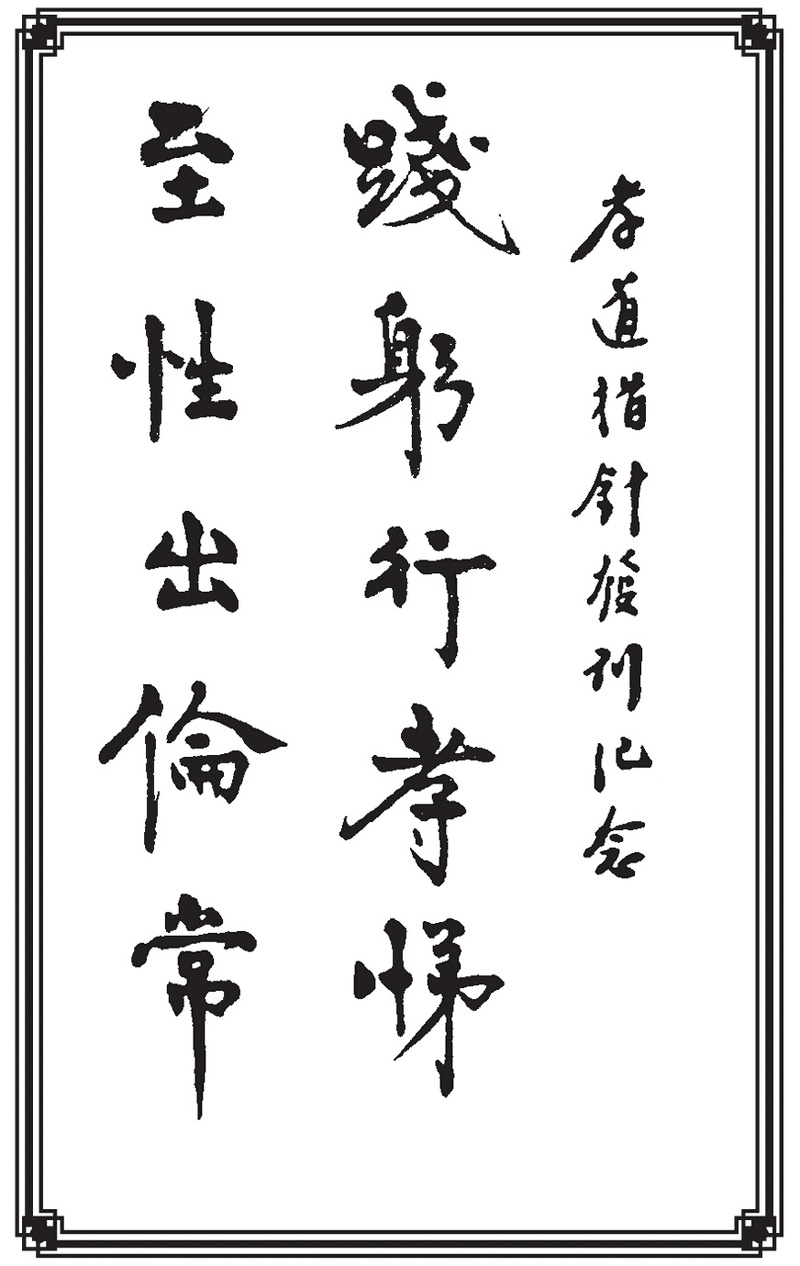 孝道指針發刊记念
踐躬行孝悌
至性出倫常